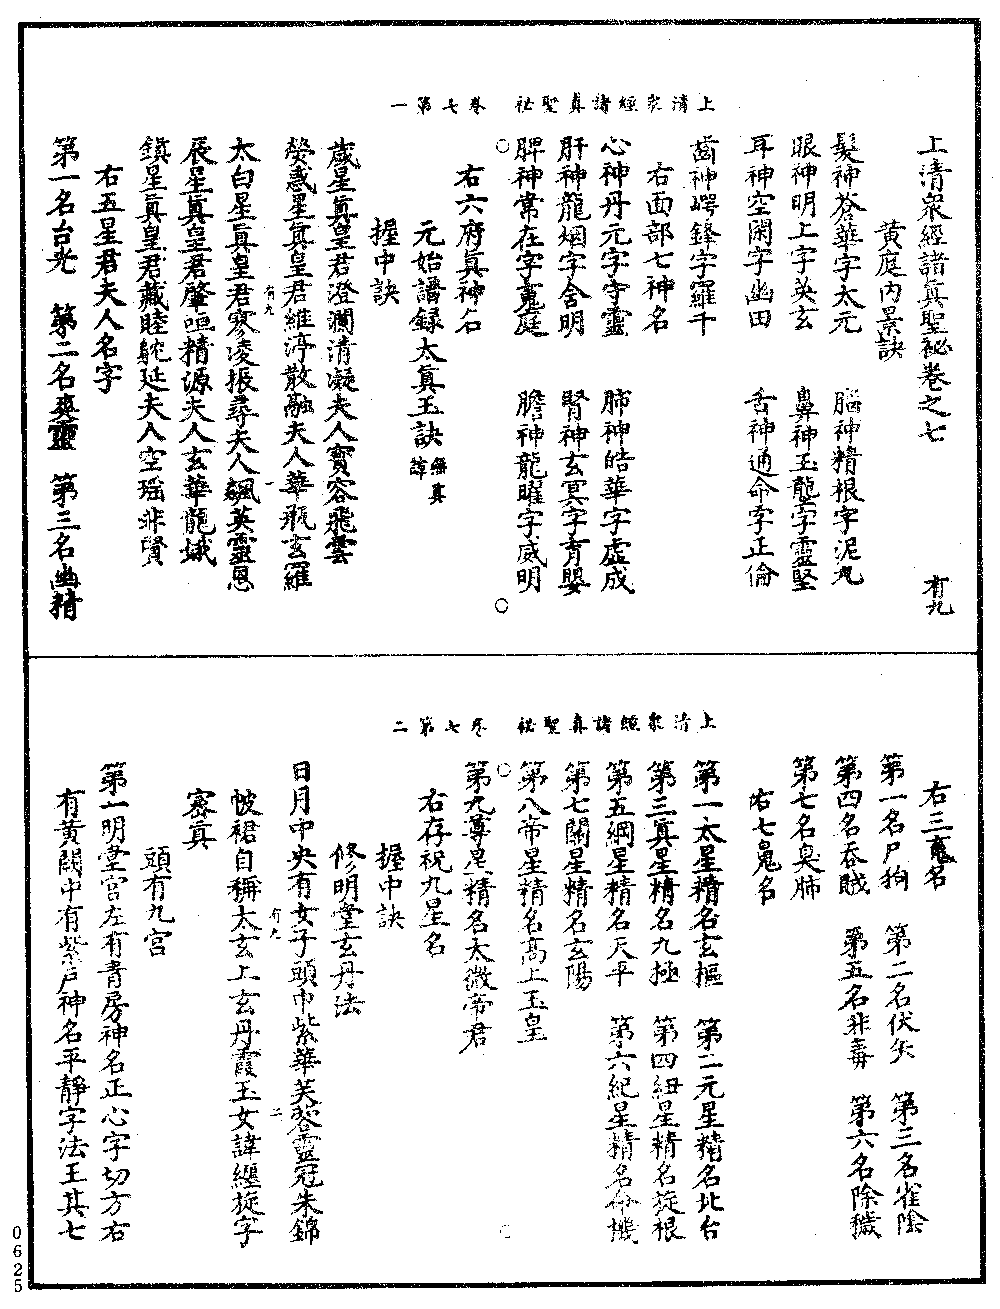 上清衆經諸真聖祕　卷七第一
上清衆經諸眞聖祕卷之七　有九
黄庭内景訣
髮神蒼華字太元　腦神精根字泥丸
眼神明上字英玄　鼻神玉壟字靈堅
耳神空閑字幽田　舌神通命字正倫
齒神崿鋒字羅千
右面部七神名
心神丹元字守靈　肺神皓華字虛成
肝神龍烟字含明　腎神玄冥字育嬰
脾神常在字䰟庭　膽神龍曜字威明
右六府眞神名
元始譜録太眞玉訣
握中訣
歲星眞皇君澄瀾清凝夫人寳容飛雲
熒惑星眞皇君維渟散融夫人華瓶玄羅
有九　一
太白星眞皇君寥凌振尋夫人飆英靈恩
辰星眞皇君肇呾精源夫人玄華龍娥
鎮星眞皇君藏睦躭延夫人空瑶非賢
右五星君夫人名字
第一名台光　第二名爽靈　第三名幽精
上清衆經諸真聖祕　卷七第二
右三䰟名
第一名尸狗　第二名伏矢　第三名雀陰
第四名吞賊　第五名非毒　第六名除穢
第七名臭肺
右七鬼名
第一太星精名玄樞　第二元星精名北台
第三真星精名九極　第四紐星精名旋根
第五綱星精名天平　第六紀星精名命機
第七關星精名玄陽
第八帝星精名髙上玉皇
第九尊星精名太微帝君
右存祝九星名
握中訣
修明堂玄丹法
日月中央有女子頭巾紫華芙蓉靈冠朱錦
有九　二
帔裙自稱太玄上玄丹霞玉女諱纏旋字
密真
頭有九宮
第一明堂宫左有青房神名正心字切方右
有黄闕中有紫戸神名平靜字法王其七
0625